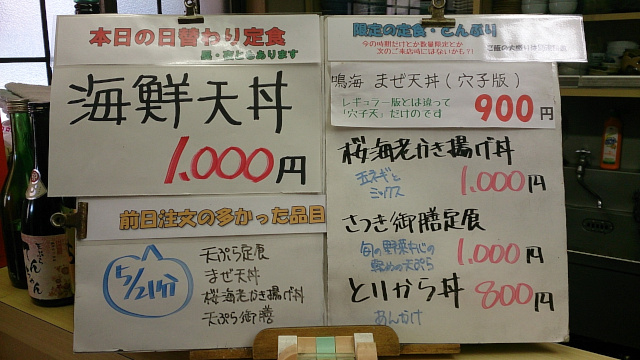 本日の日替わり定食
昼・夜ともあります
海鮮天丼
1,000円
前日注文の多かった品目
5/21分
天ぷら定食
まぜ天丼
桜海老かき揚げ丼
天ぷら御膳
限定の定食・どんぶり
今の時期だけとか数量限定とか
次のご来店時にはないかも?!
鳴海 まぜ天丼(穴子版)
レギュラー版とは違って
「穴子天」だけのです
900円
桜海老かき揚げ丼
玉ネギと
ミックス
1,000円
さつき御膳定食
旬の野菜中心の
1,000円
とりから丼 800円
あんかけ